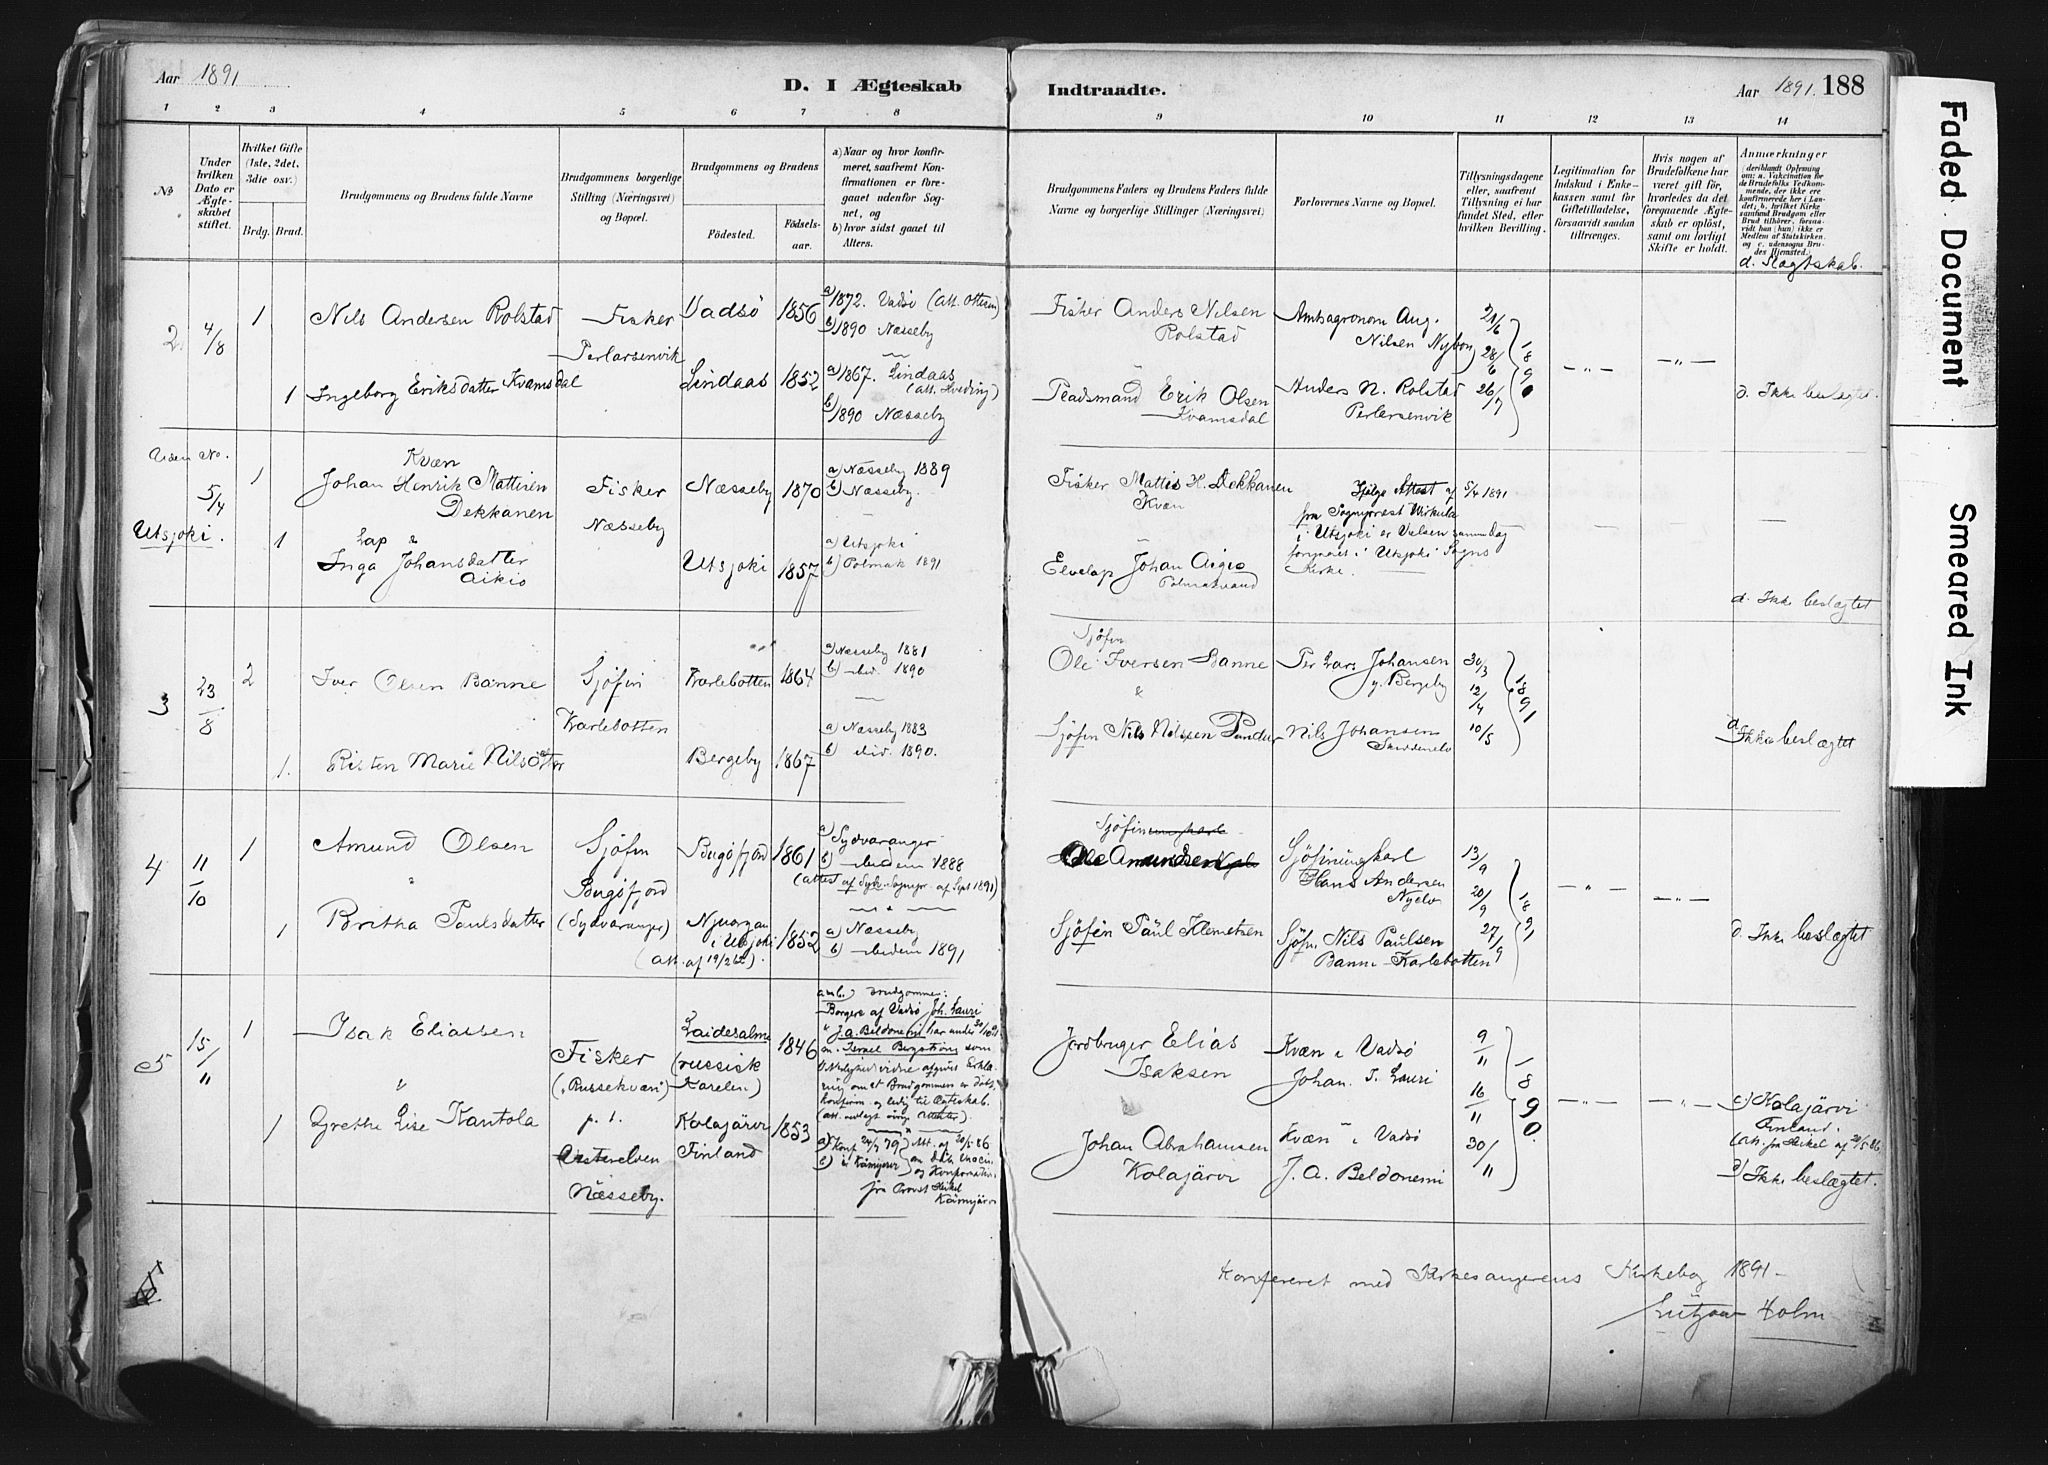 Aar 1891
D. I Ægteskab
Indtraadte.
Aar 1891. 188
1 2 3 4 5 6 7 8 9 10 11 12 13 14
No
Under hvilken Dato er Ægteskabet stiftet.
Hvilket Gifte (1ste, 2det, 3die osv.)
Brdg. Brud.
Brudgommens og Brudens fulde Navne
Brudgommens borgerlige Stilling (Næringsvei) og Bopæl.
Brudgommens og Brudens
Fødested.
Fødselsaar.
a) Naar og hvor konfirmeret, saafremt Konfirmationen er foregaaet udenfor Sognet, og
b) hvor sidst gaaet til Alters.
Brudgommens Faders og Brudens Faders fulde Navne og borgerlige Stillinger (Næringsvei)
Forlovernes Navne og Bopæl.
Tillysningsdagene eller, saafremt Tillysning ei har fundet Sted, efter hvilken Bevilling.
Legitimation for Indskud i Enkekassen samt for Giftetilladelse, forsaavidt saadan tiltrænges.
Hvis nogen af Brudefolkene har været gift før, hvorledes da det foregaaende Ægteskab er opløst, samt om lovligt Skifte er holdt.
Anmærkninger
(deriblandt Oplysning om: a. Vakcination for de Brudefolks Vedkommende, der ikke ere konfirmerede her i Landet; b. hvilket Kirkesamfund Brudgom eller Brud tilhører, forsaavidt han (hun) ikke er Medlem af Statskirken, og c. udensogns Brudes Hjemsted.)
d. Slægtskab.
2 4/8 1 Nils Andersen Rolstad
Fisker
Perlarsenvik
Vadsö 1856
a) 1872. Vadsö (att. Otterm)
b) 1890 Næsseby
Fisker Anders Nilsen
Rolstad
Amtsagronom Aug.
Nilsen Nyborg
21/6
28/6
26/7
1890
1 Ingeborg Eriksdatter Kvamsdal
Lindaas 1852
a) 1867. Lindaas
(att. Hveding)
b) 1890 Næsseby
Erik Olsen
Kvamsdal
Anders N. Rolstad
Perlarsenvik
d. Ikke beslægtet.
Uden No.
5/4
Utsjoki.
1
Kvæn
Johan Henrik Mattisen
Dekkanen
Fisker
Næsseby
Næsseby 1870
a) Næsseby 1889
b) Næsseby.
Fisker Mattis H. Dekkanen
Kvæn
Ifølge Attest af 5/4 1891
fra Sogneprest Wirkula
i Utsjoki er Vielsen samme Dag
foregaaet i Utsjoki Sogns
Kirke.
1 Lap &
Inga Johansdatter
Aikio
Utsjoki 1857
a) Utsjoki
b) Polmak 1891
Elvelap Johan Aigio
Polmakvand
d. Ikke beslægtet
3 23/8 2 Iver Olsen Banne
Sjöfin
Karlebotten
Karlebotten 1864
a) Næsseby 1881
b) ibid. 1890
Sjöfin
Ole Iversen Banne
&
Per Lars Johansen
y. Bergeby
30/3
12/4
10/5
1891
1. Risten Marie Nilsdatter
Bergeby 1867
a) Næsseby 1883
b) ibid. 1890.
Sjöfin Nils Nilssen
Nils Johansen
d. Ikke beslægtet
4 11/10 1 Amund Olsen
Sjöfin
Bugöfjord
(Sydvaranger)
Bugöfjord 1861
a) Sydvaranger
b) ibidem 1888
(attest af Sydv. Sognepr. af Sept 1891)
Sjöfin
Ole Amundsen
Sjöfinungkarl
Hans Andersen
Nyelv
13/9
20/9
27/9
1891
1 Britha Paulsdatter
Njuorgan
i Utsjoki 1852
a) Næsseby
b) ibidem 1891
Sjöfin Paul Klemetsen
Sjöfin Nils Paulsen
Banne Karlebotten
d. Ikke beslægtet
5 15/11 1 Isak Eliassen
Fisker
("Russekvæn")
Laidesalmi
(russisk
Karelen)
1846
anb.) Brudgommen:
Borgere af Vadsø Joh. Lauri
J. A. Beldonemi har under
Israel Bergström som
Brudgommen er døbt,
konfirm. og ledig til Ægteskab.
Jordbruger Elias
Isaksen
Kvæn i Vadsö
Johan. I. Lauri
9/11
16/11
30/11
1890.
1 Grethe Lise Kantola
p. t.
Næsseby.
Kolajärvi
Finland
1853
a) Konf 24/7 79
Kämijärvi
Johan Abrahamsen
Kolajärvi
Kvæn i Vadsö
J. A. Beldonemi
c) Kolajärvi
Finland.
d) Ikke beslægtet.
Konfereret med Kirkesangerens Kirkebog 1891
Lützow Holm
Faded Document
Smeared Ink